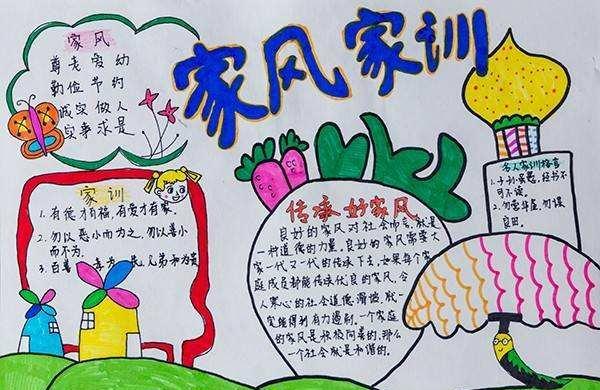 家风家训
家风
尊老爱幼
勤俭节约
诚实做人
实事求是
家训
1.有德才有福,有爱才有家。
2.勿以恶小而为之,勿以善小
而不为。
3.百善 孝为先,兄弟和为
传承好家风
良好的家风对社会而言,就是
一种道德的力量。良好的家风需要大
家一代又一代的传承下去,如果每个家
庭成员都能传承优良的家风,令
人寒心的社会道德滑坡,就一
定能得到有力遏制,一个家庭
的家风是积极向善的,那么
一个社会就是和谐的。
名人家训格言
1.子孙虽愚,经书不
可不读。
2.勿营华屋,勿谋
良田。